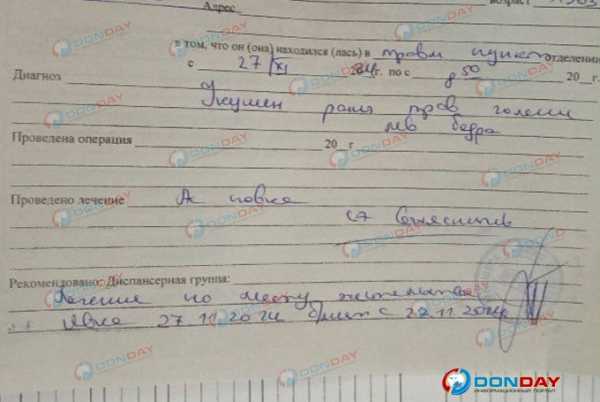 Адрес
возраст
в том, что он (она) находился (лась) в травм пункт отделении
с 27/XI 2024г. по с 8 50 20__г.
Диагноз
Укушен рана прав голени
лев бедра
Проведена операция 20 г
Проведено лечение Ас повка
Рекомендовано: Диспансерная группа:
Лечение по месту жительства
Явка 27.11.2024 с 27.11.2024
DONDAY
ИНФОРМАЦИОННЫЙ ПОРТАЛ